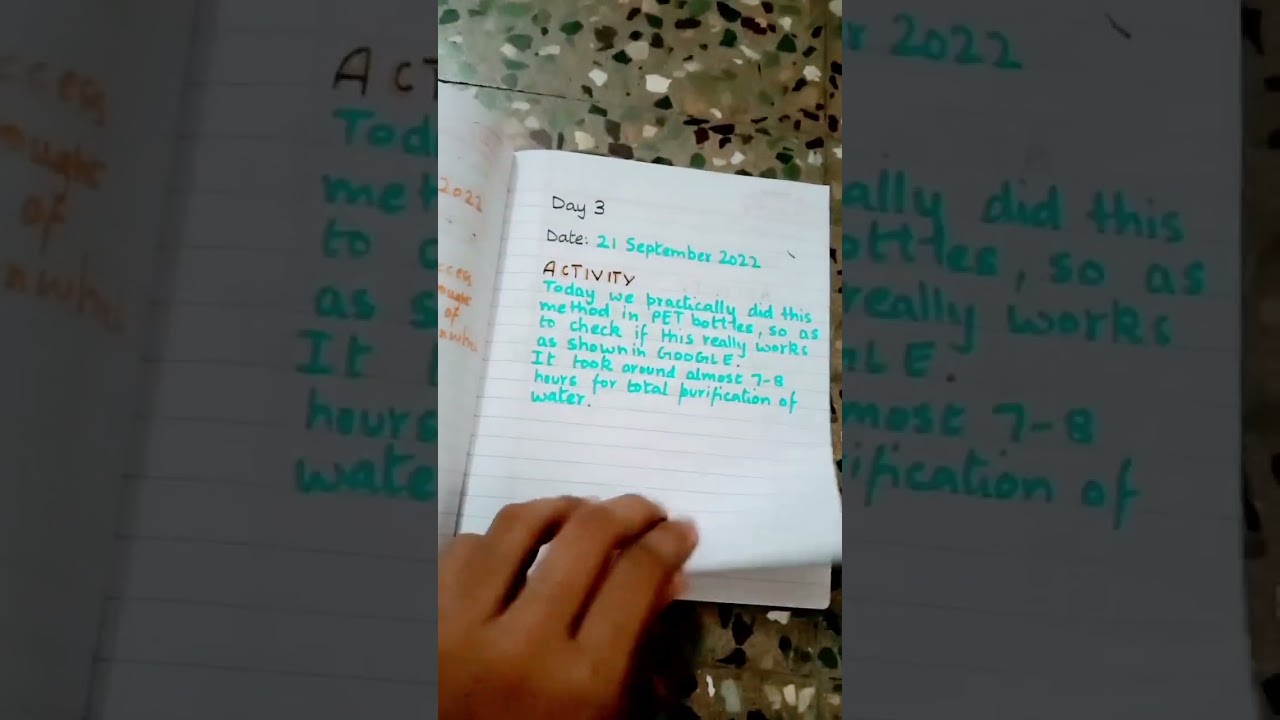 Day 3
Date: 21 September 2022
ACTIVITY
Today we practically did this
method in PET bottles, so as
to check if this really works
as shown in GOOGLE.
It took around almost 7-8
hours for total purification of
water.
2022
ccess
ought
of